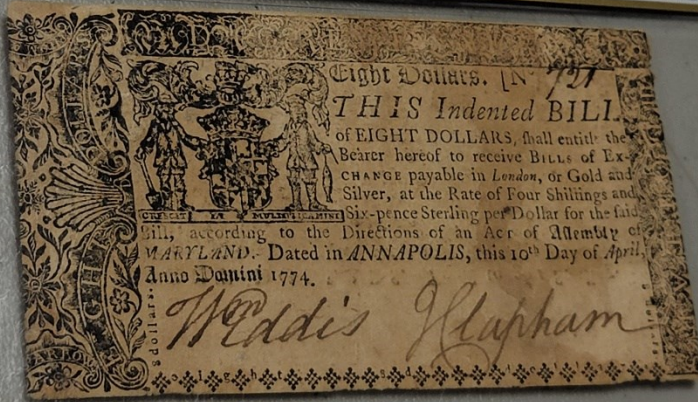 Eight Dollars. [N° 721
THIS Indented BILL
of EIGHT DOLLARS, shall entitle the
Bearer hereof to receive BILLS of Ex-
CHANGE payable in London, or Gold and
Silver, at the Rate of Four Shillings and
CRESCITE ET MULTIPLICAMINI
Six-pence Sterling per Dollar for the said
Bill, according to the Directions of an Act of Assembly of
MARYLAND. Dated in ANNAPOLIS, this 10th Day of April,
Anno Domini 1774.
Wm Eddis J Clapham